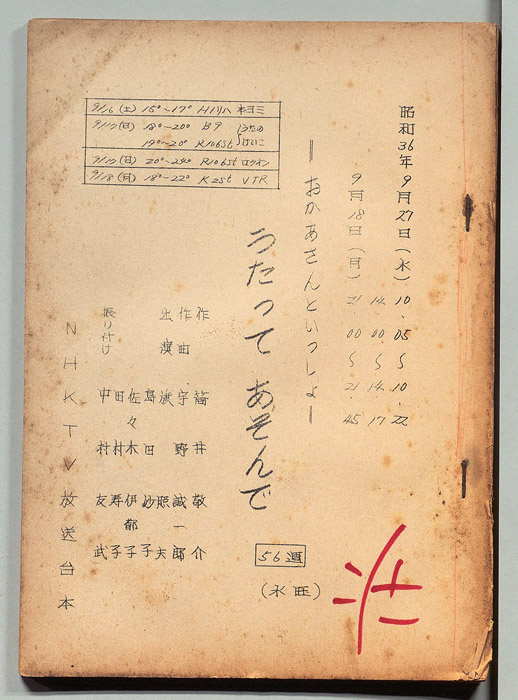 昭和36年9月27日(水) 10.05〜10.22
14.00〜14.17
9月18日(月) 21.00〜21.45
―おかあさんといっしょ―
うたって あそんで
56週
作 筒井敬介
作曲 宇野誠一郎
出演 照夫
島田妙子
佐々木伊都子
田村寿子
振り付け 中村友武
NHKTV放送台本
9/16(土) 15°〜17° Hリハ 本ヨミ
9/17(日) 18°〜20° B9
19°〜20° R106St けいこ
9/17(日) 20°〜24° R106St ロクオン
9/18(月) 18°〜22° K2St VTR